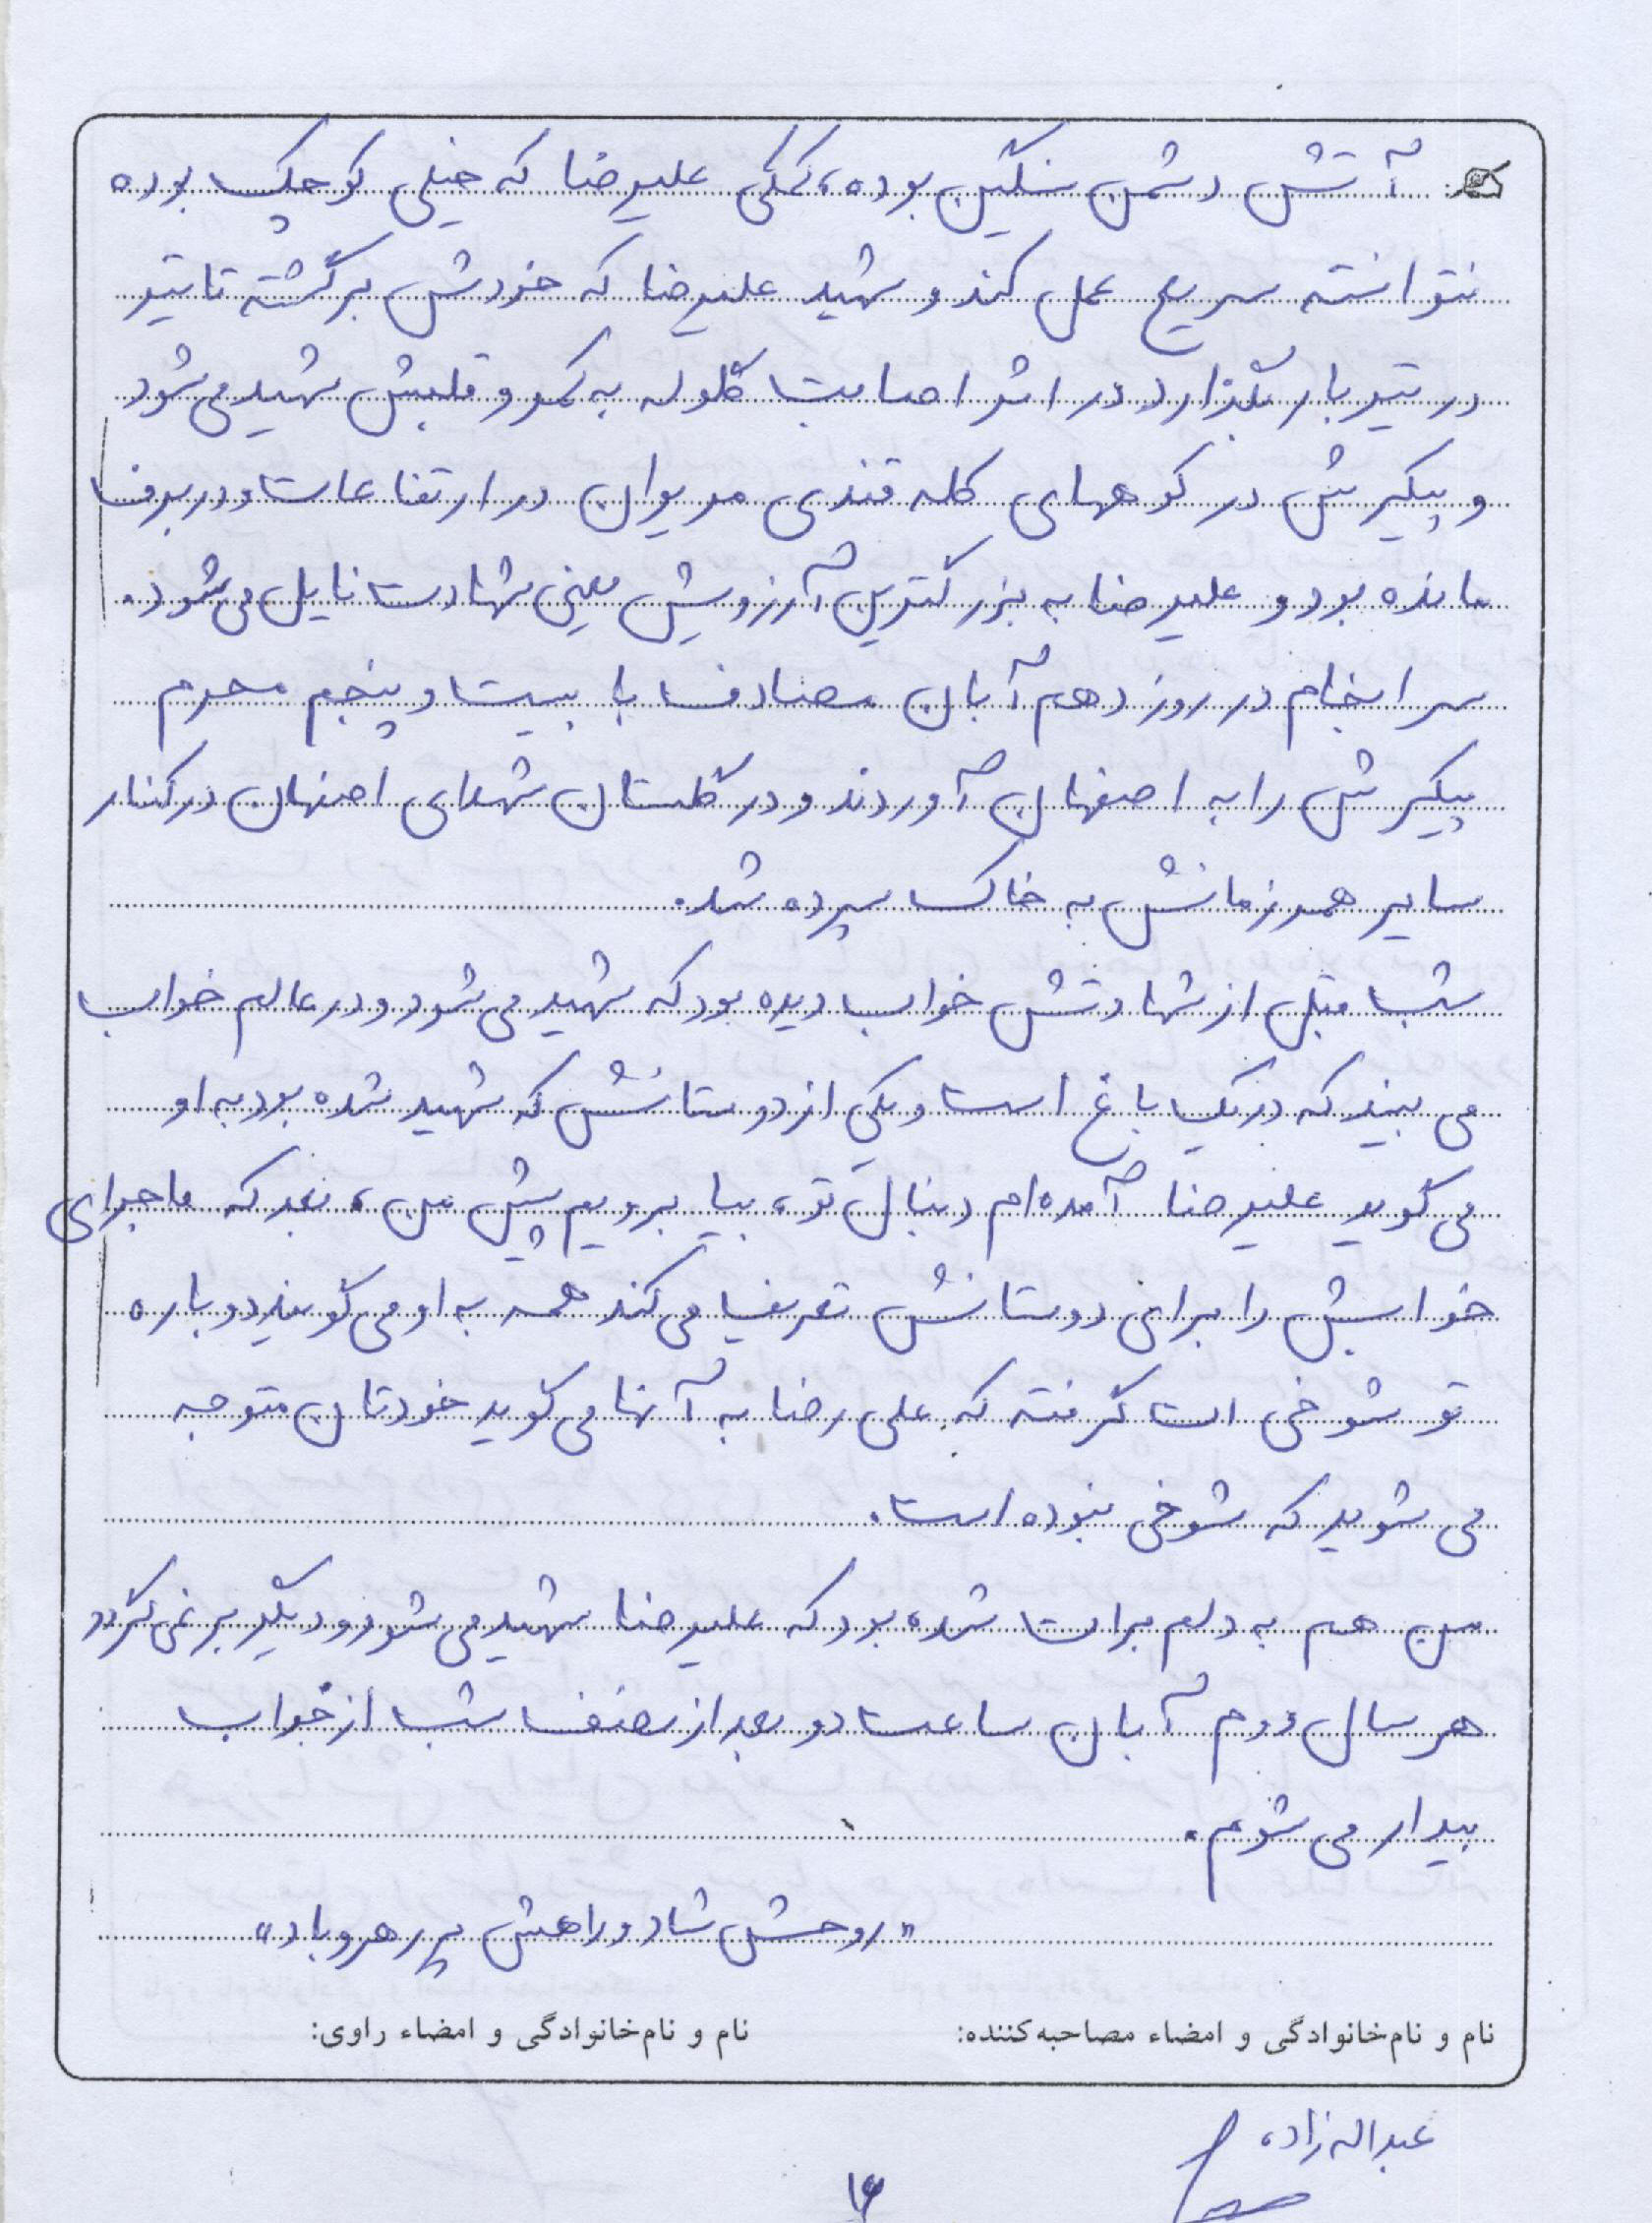 آتش دشمن سنگین بوده، کمکی علیرضا که خیلی کوچک بوده
نتوانسته سریع عمل کند و شهید علیرضا که خودش برگشته تا تیر
در تیربار بگذارد در اثر اصابت گلوله به کمر و قلبش شهید می شود
و پیکرش در کوههای کله قندی مریوان در ارتفاعات و در برف
مانده بود و علیرضا به بزرگترین آرزویش یعنی شهادت نایل می شود.
سرانجام در روز دهم آبان مصادف با بیست و پنجم محرم
پیکرش را به اصفهان آوردند و در گلستان شهدای اصفهان در کنار
سایر همرزمانش به خاک سپرده شد.
شب قبل از شهادتش خواب دیده بود که شهید می شود و در عالم خواب
می بیند که در یک باغ است و یکی از دوستانش که شهید شده بود به او
می گوید علیرضا آمده ام دنبال تو، بیا برویم پیش من، بعد که ماجرای
خوابش را برای دوستانش تعریف می کند همه به او می گویند دوباره
تو شوخی ات گرفته که علی رضا به آنها می گوید خودتان متوجه
می شوید که شوخی نبوده است.
من هم به دلم برات شده بود که علیرضا شهید می شود و دیگر بر نمی گردد
هر سال دوم آبان ساعت دو بعد از نصف شب از خواب
بیدار می شوم.
«روحش شاد و راهش پر رهرو باد»
نام و نام‌خانوادگی و امضاء مصاحبه‌کننده: نام و نام‌خانوادگی و امضاء راوی:
عبداله زاده
۱۶